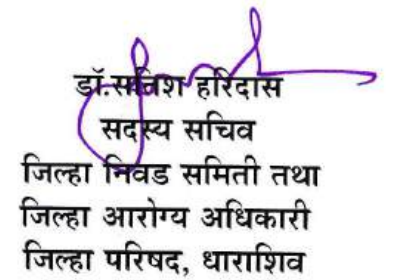 डॉ.सतिश हरिदास
सदस्य सचिव
जिल्हा निवड समिती तथा
जिल्हा आरोग्य अधिकारी
जिल्हा परिषद, धाराशिव